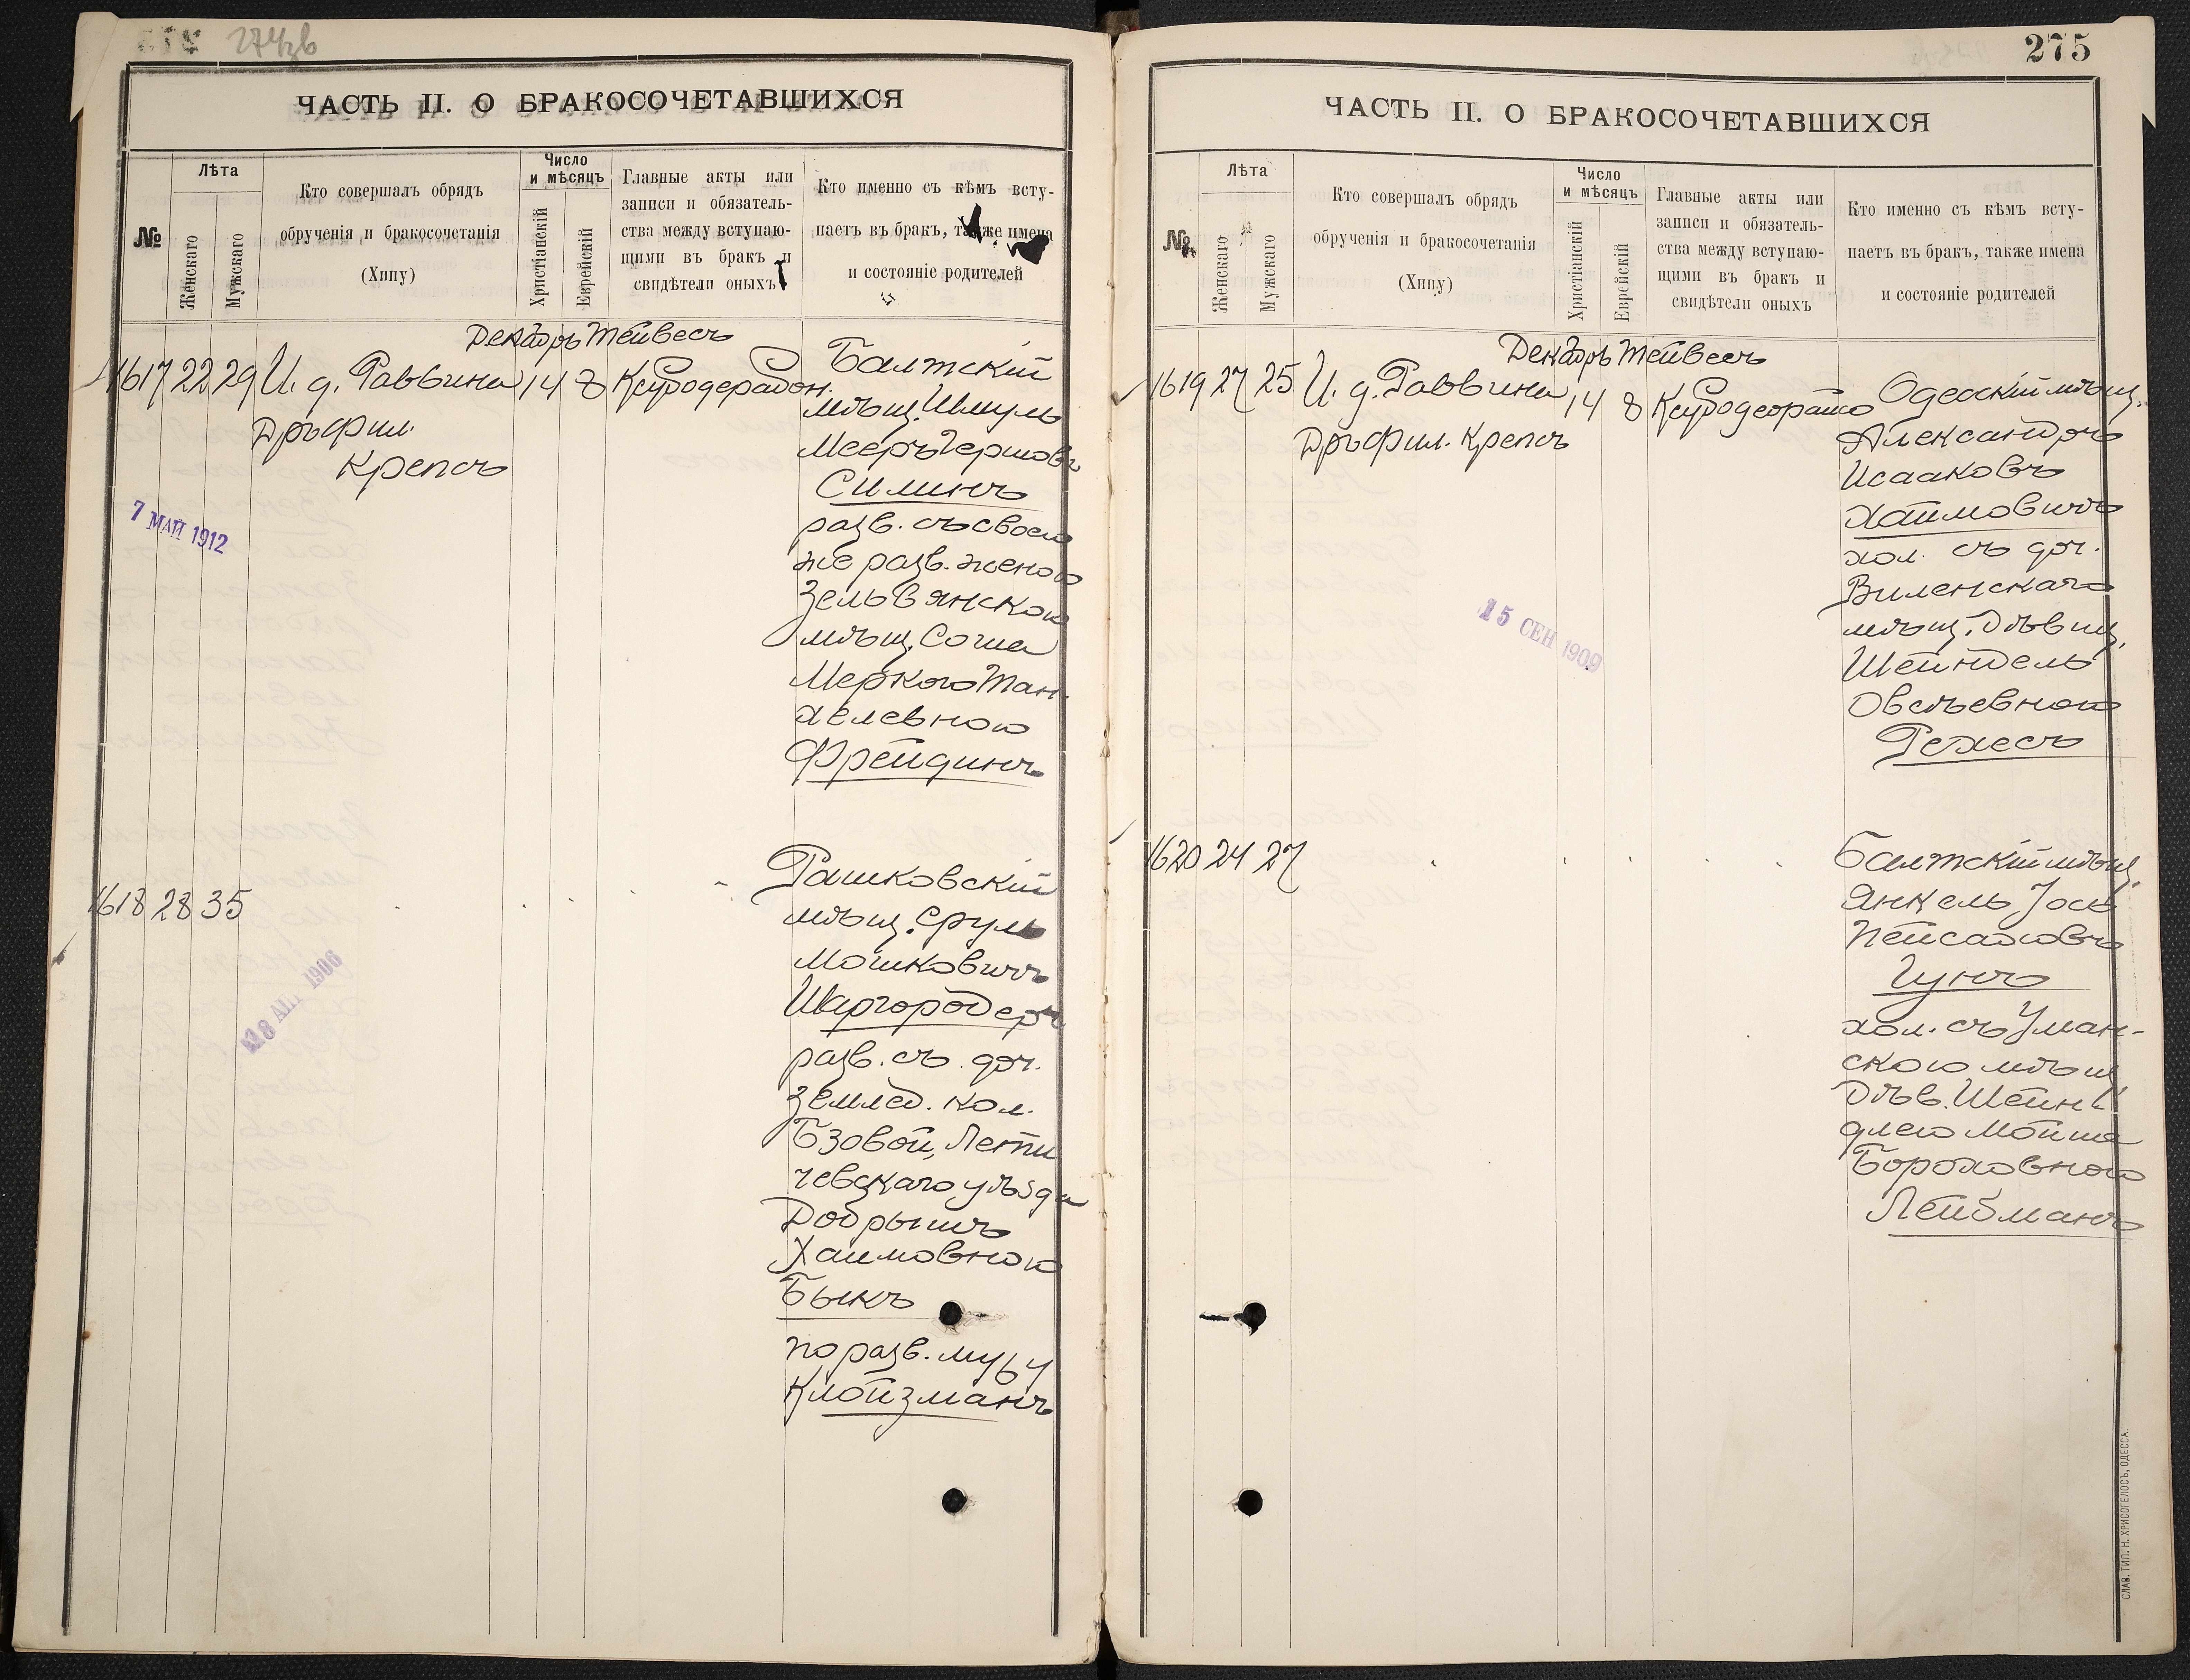 274зв
ЧАСТЬ II. О БРАКОСОЧЕТАВШИХСЯ
№
Лѣта
Женскаго
Мужскаго
Кто совершалъ обрядъ
обрученія и бракосочетанія
(Хипу)
Число
и мѣсяцъ
Христіанскій
Еврейскій
Главные акты или
записи и обязатель-
ства между вступаю-
щими въ бракъ и
свидѣтели оныхъ
Кто именно съ кѣмъ всту-
паетъ въ бракъ, также имена
и состояніе родителей
Декабрь Тейвесъ
1617 22 29 И. д. Раввина 14 8
Дръ Фил.
Крепсъ
Балтскій
мѣщ. Шмуль
Мееръ Гершовъ
Силинъ
разв. съ своею
же разв. женою
Зельвянскою
мѣщ. Соша
Меркою Тан-
хелевною
Фрейдинъ
7 МАЙ 1912
1618 28 35
Рашковскій
мѣщ. Сруль
Мошковичъ
Шаргородеръ
разв. съ доч.
Землед. кол.
Бзовой, Лети
чевскаго уѣзда
Добрышъ
Хаимовною
Быкъ
по разв. мужу
Клойзманъ
18 АП 1906
275
ЧАСТЬ II. О БРАКОСОЧЕТАВШИХСЯ
№
Лѣта
Женскаго
Мужскаго
Кто совершалъ обрядъ
обрученія и бракосочетанія
(Хипу)
Число
и мѣсяцъ
Христіанскій
Еврейскій
Главные акты или
записи и обязатель-
ства между вступаю-
щими въ бракъ и
свидѣтели оныхъ
Кто именно съ кѣмъ всту-
паетъ въ бракъ, также имена
и состояніе родителей
Декабрь Тейвесъ
1619 27 25 И. д. Раввина 14 8
Дръ Фил. Крепсъ
Одесскій мѣщ.
Александръ
Исааковъ
Хаимовичъ
хол. съ доч.
Виленскаго
мѣщ. Дѣвиц.
Шейндель
Овсѣевною
Рехесъ
15 СЕН 1909
1620 24 27
Балтскій мѣщ.
Янкель Іось
Пейсаховъ
Гунъ
хол. съ Уман-
скою мѣщ.
Дѣв. Шейн-
длею Мойша
Бороховною
Лейбманъ
СЛАВ. ТИП. Н. ХРИСОГЕЛОСЪ, ОДЕССА.